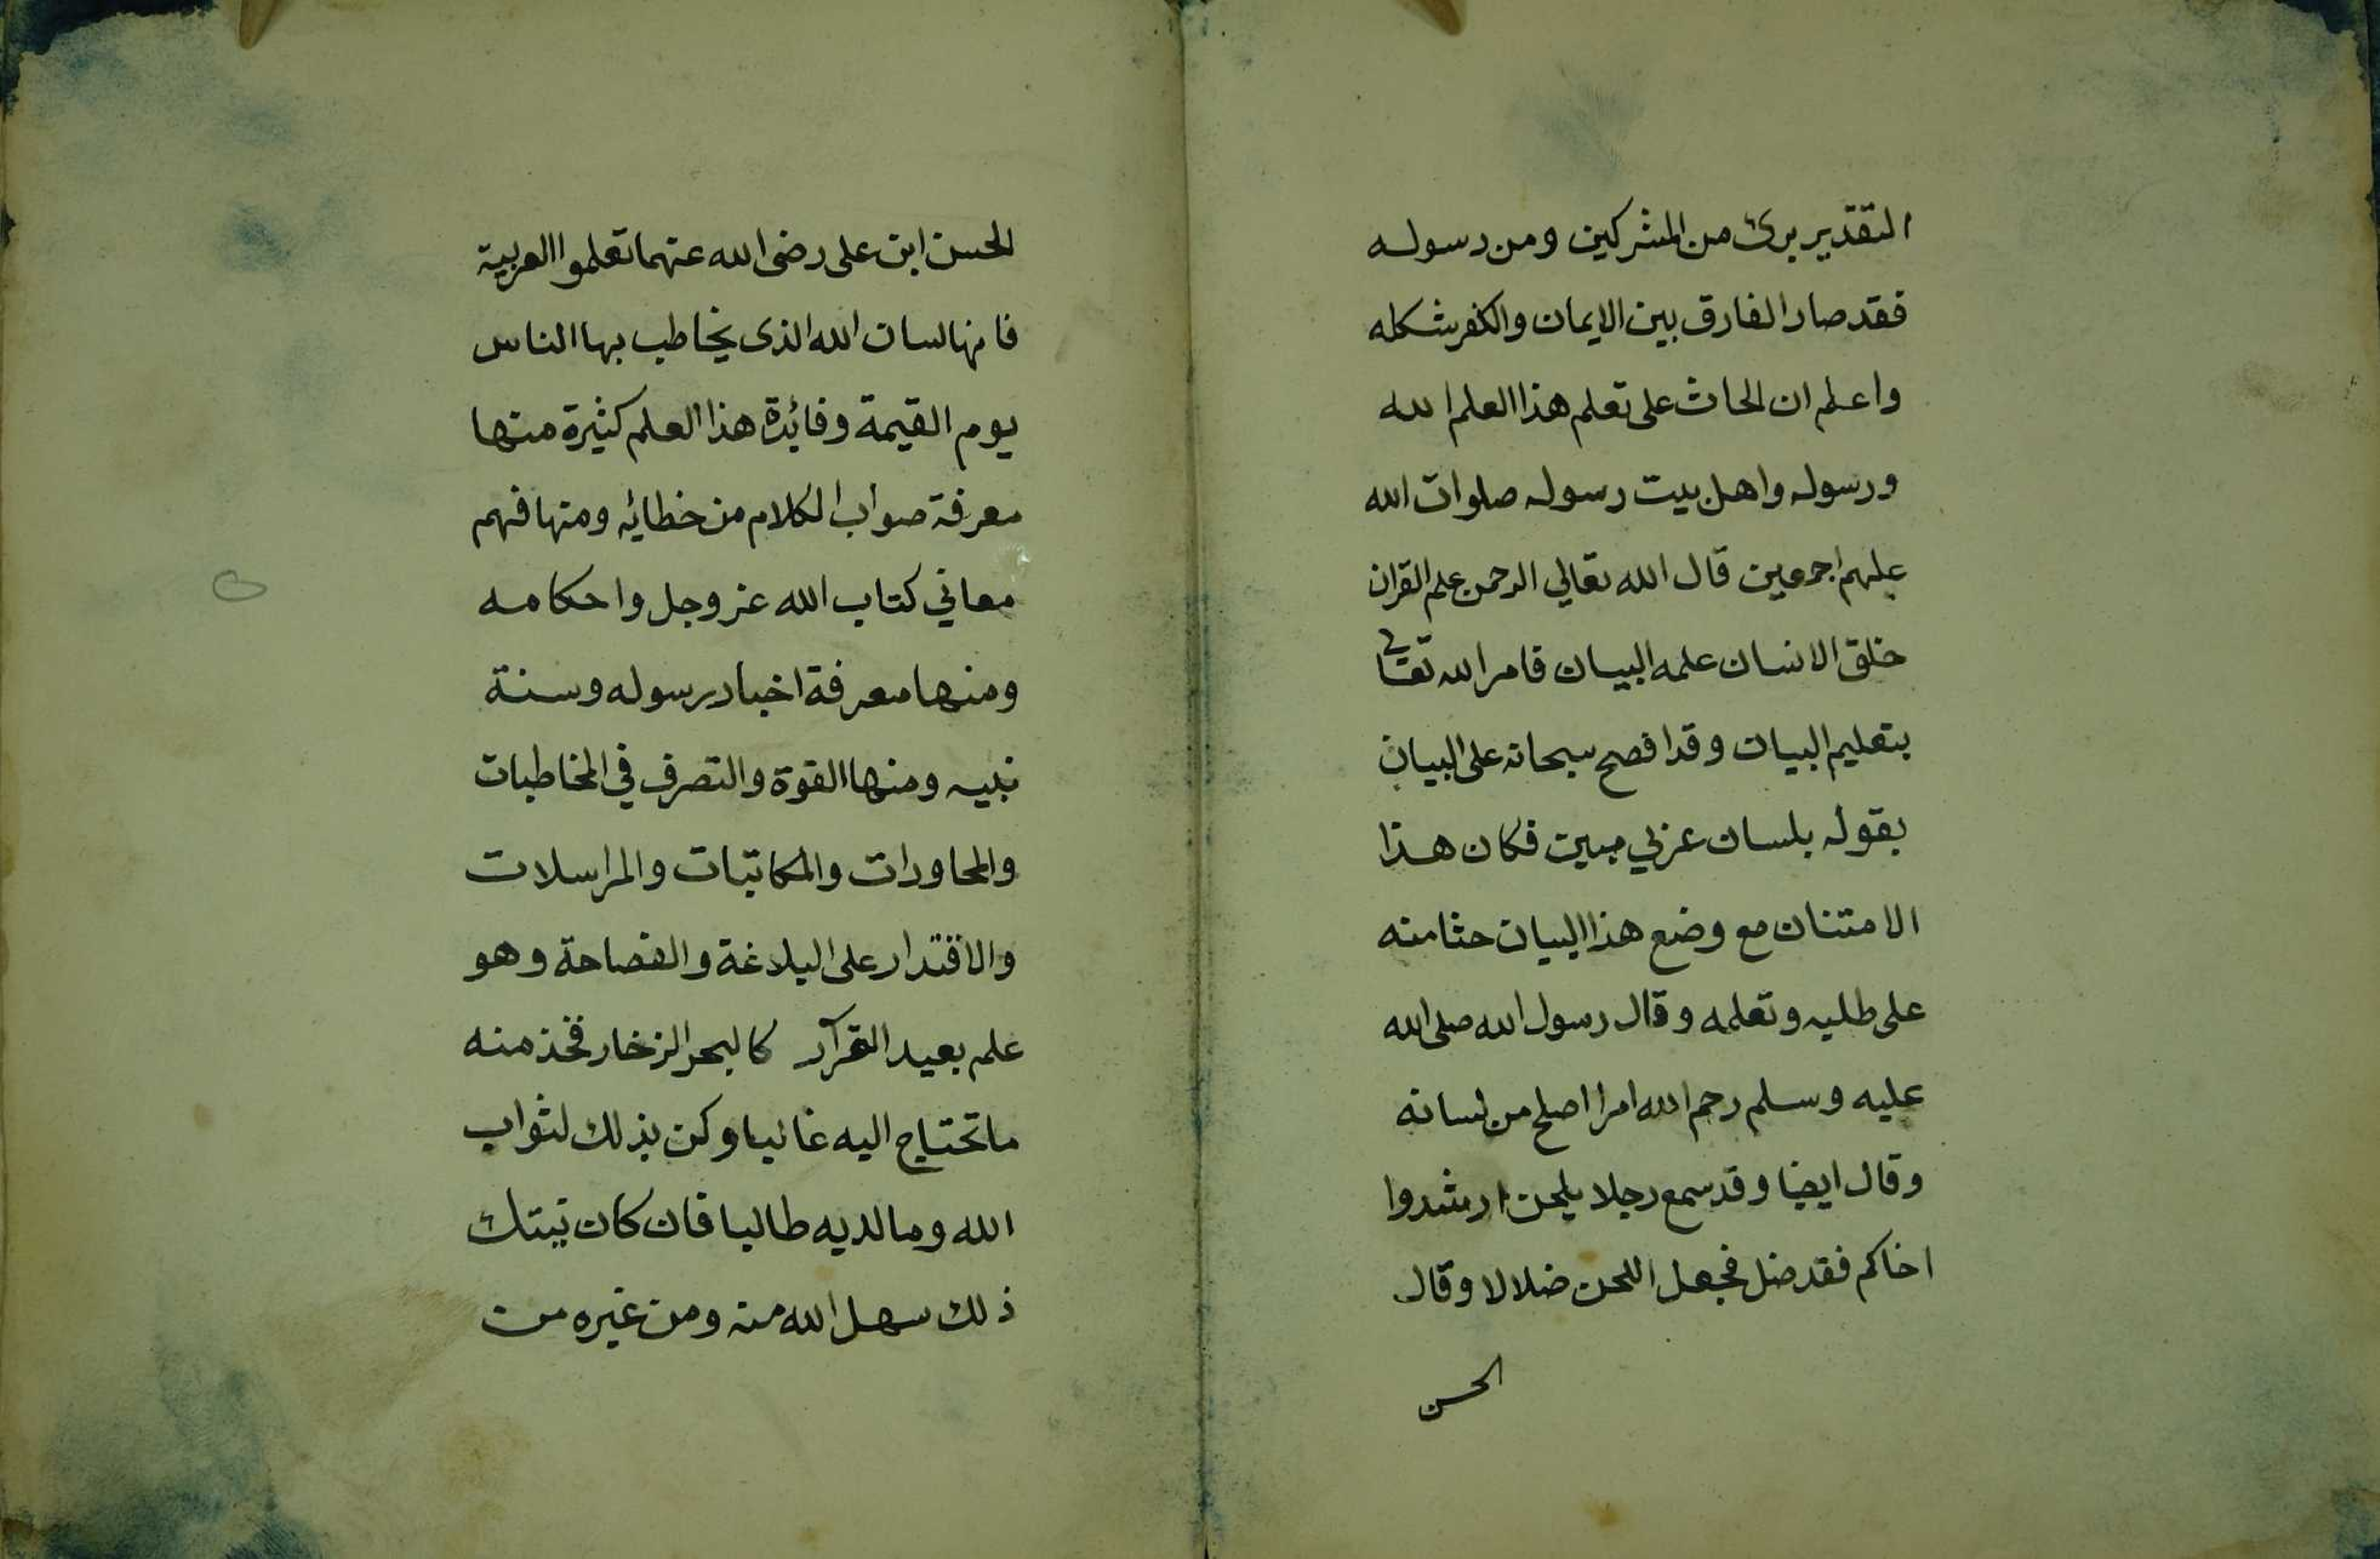 التقدير برئ من المشركين ومن رسوله
فقد صار الفارق بين الايمان والكفر شكله
واعلم ان الحاث على تعلم هذا العلم الله
ورسوله واهل بيت رسوله صلوات الله
عليهم اجمعين قال الله تعالي الرحمن علم القران
خلق الانسان علمه البيان فامر الله تعالى
بتعليم البيان وقد افصح سبحانه على البيان
بقوله بلسان عربي مبين فكان هذا
الامتنان مع وضع هذا البيان حثا منه
على طلبه وتعلمه وقال رسول الله صلى الله
عليه وسلم رحم الله امرا اصلح من لسانه
وقال ايضا وقد سمع رجلا يلحن ارشدوا
اخاكم فقد ضل فجعل اللحن ضلالا وقال
الحسن
الحسن ابن على رضى الله عنهما تعلموا العربية
فانها لسان الله الذى يخاطب بها الناس
يوم القيمة وفائدة هذا العلم كثيرة منها
معرفة صواب الكلام من خطائه ومنها فهم
معاني كتاب الله عز وجل واحكامه
ومنها معرفة اخبار رسوله وسنة
نبيه ومنها القوة والتصرف في المخاطبات
والمحاورات والمكاتبات والمراسلات
والاقتدار على البلاغة والفصاحة وهو
علم بعيد القرآر كالبحر الزخار فخذ منه
ما تحتاج اليه غالبا وكن بذلك لثواب
الله وما لديه طالبا فان كان نيتك
ذلك سهل الله منه ومن غيره من